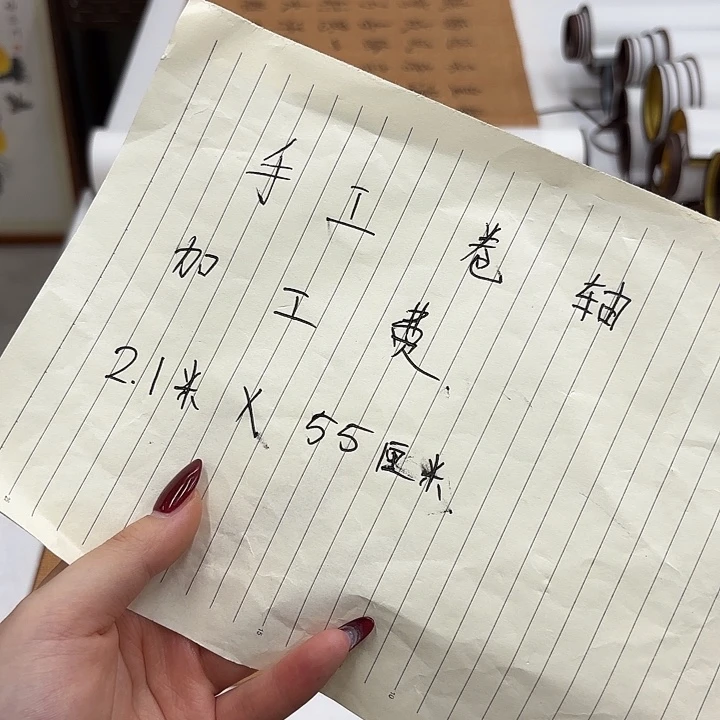 手工卷轴
加工费.
2.1米 X 55厘米.